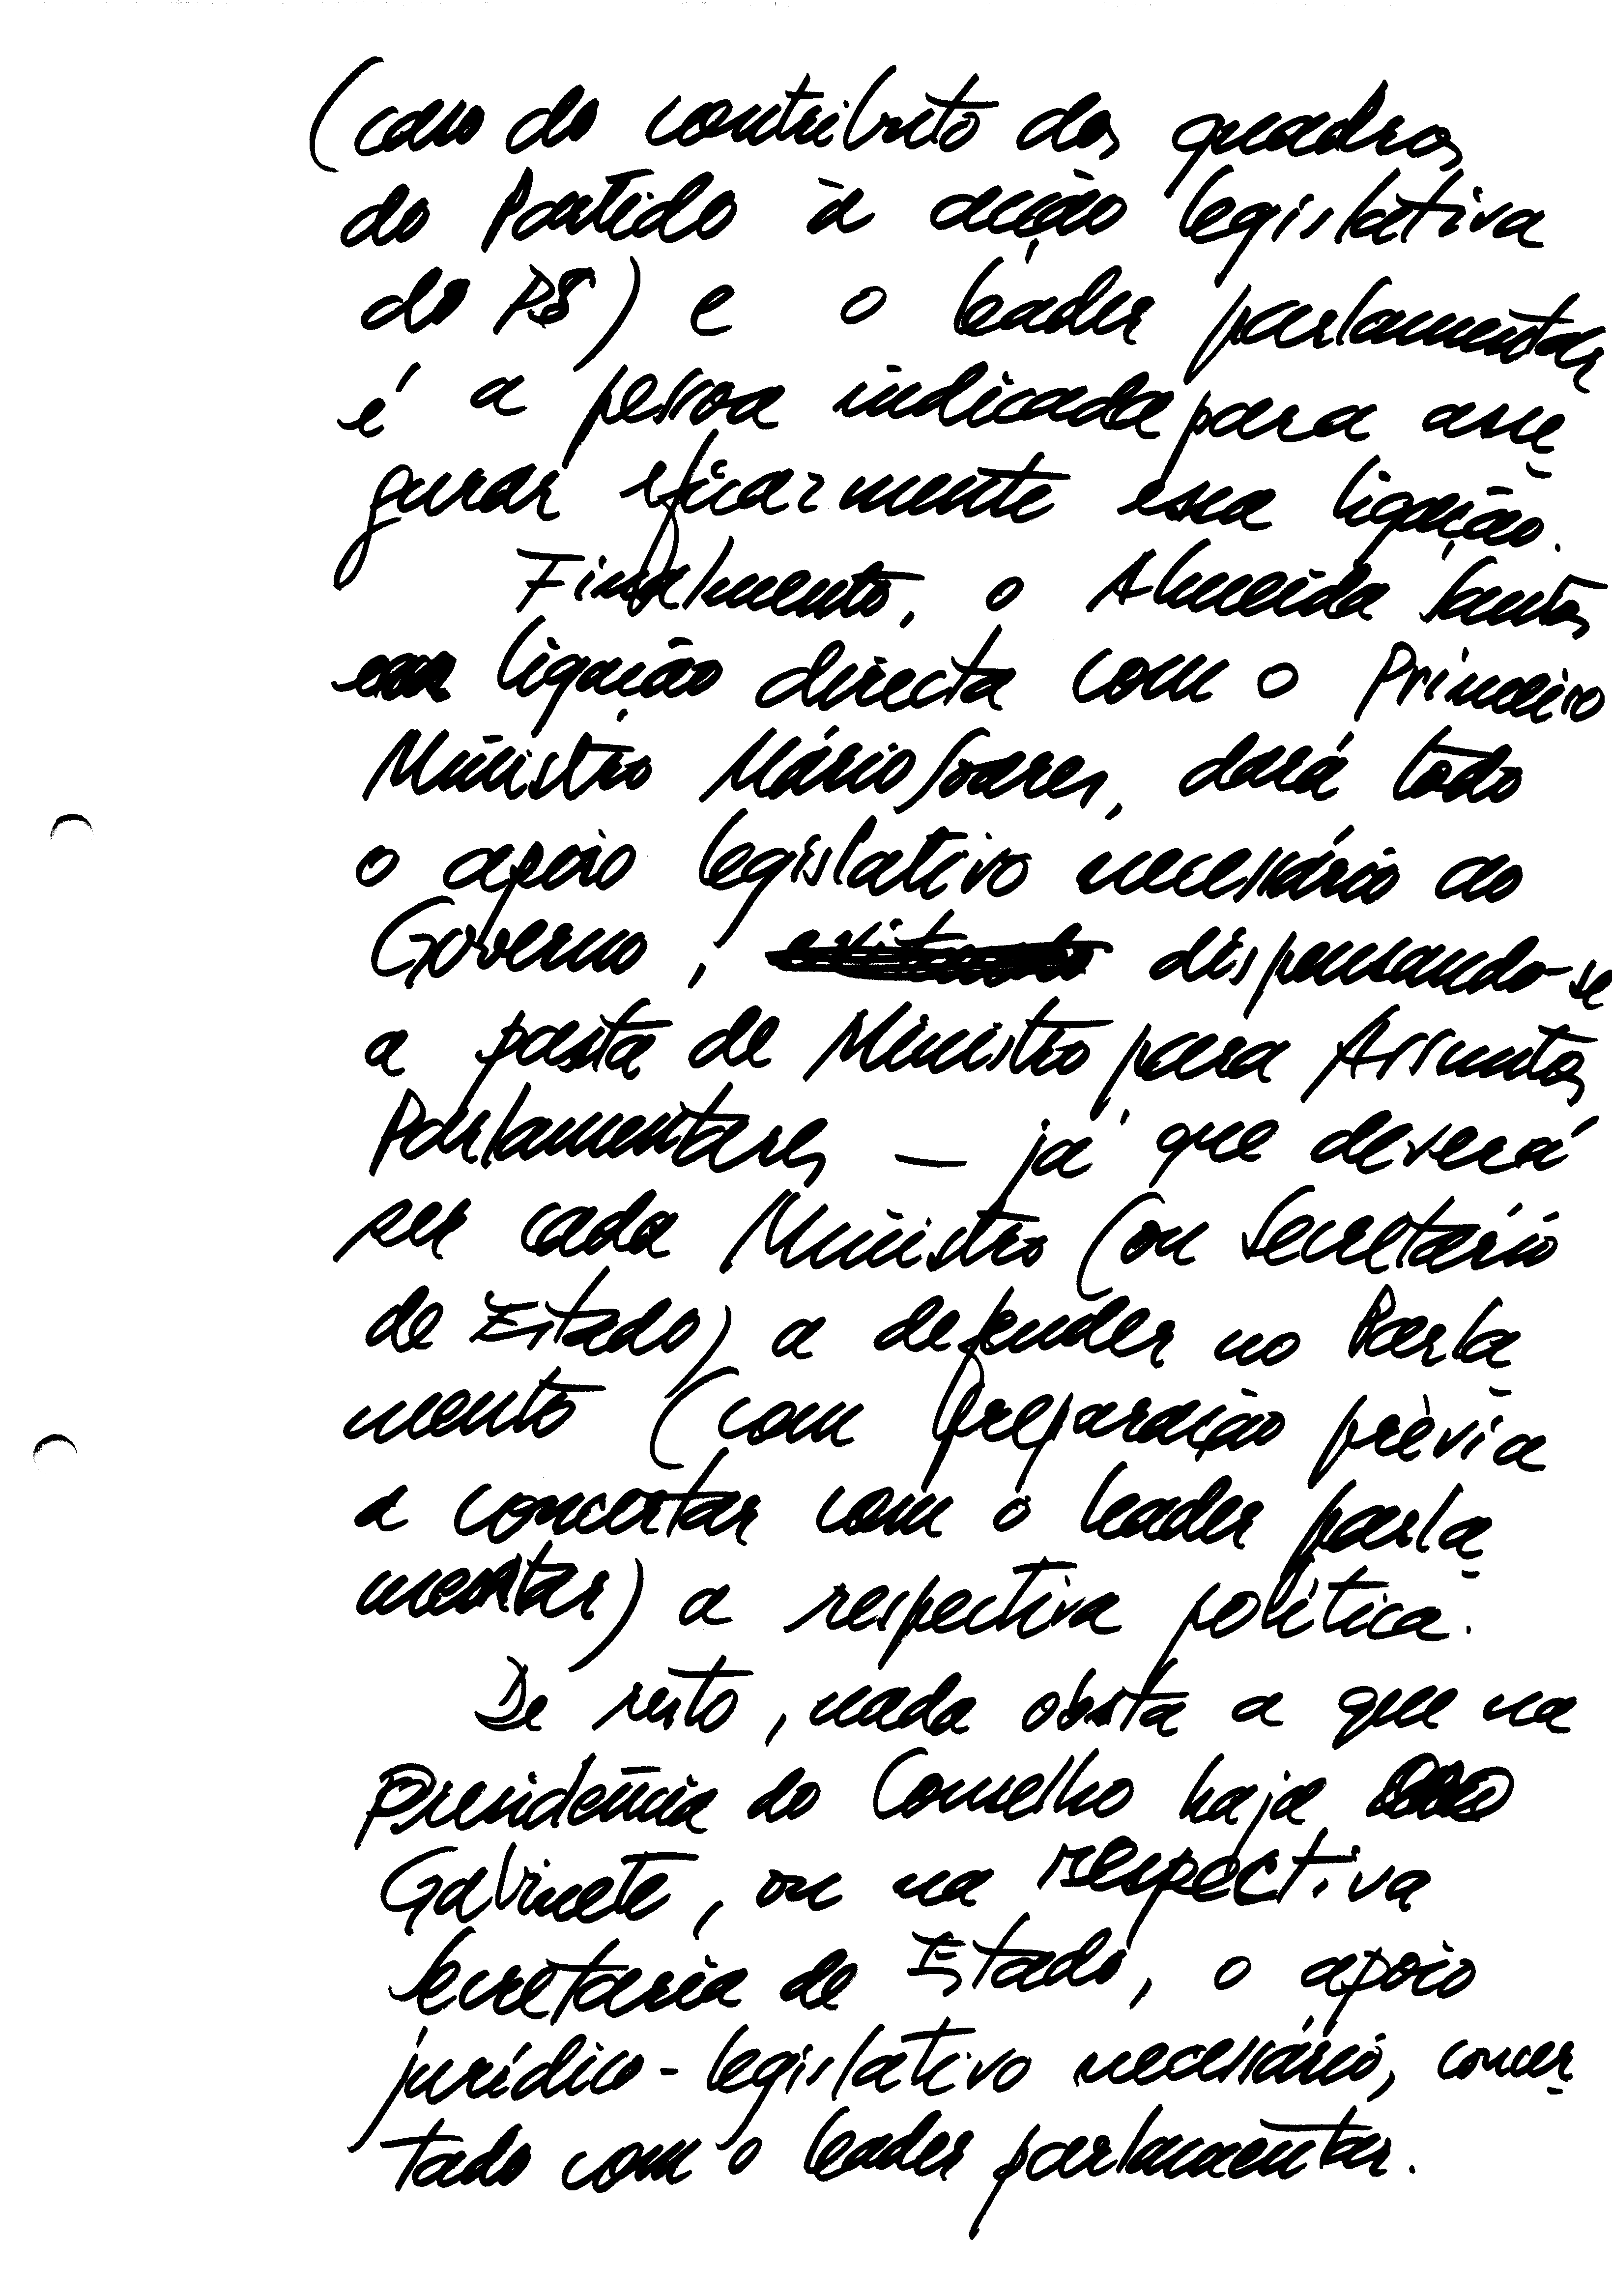 (caso do contributo dos quadros
do Partido à acção legislativa
do PS) e o leader parlamentar
é a pessoa indicada para asse
gurar eficazmente essa ligação.
Finalmente, o Almeida Santos
em ligação directa com o Primeiro
Ministro Mário Soares, dará todo
o apoio legislativo necessário ao
Governo, evitando dispensando-se
a pasta de Ministro para Assuntos
Parlamentares — já que deverá
ser cada Ministro (ou Secretário
de Estado) a defender no Parla
mento (com preparação prévia
a concertar com o leader parla
mentar) a respectiva política.
De resto, nada obsta a que na
Presidência do Conselho haja
Gabinete, ou na respectiva
Secretaria de Estado, o apoio
jurídico-legislativo necessário, concer
tado com o leader parlamentar.